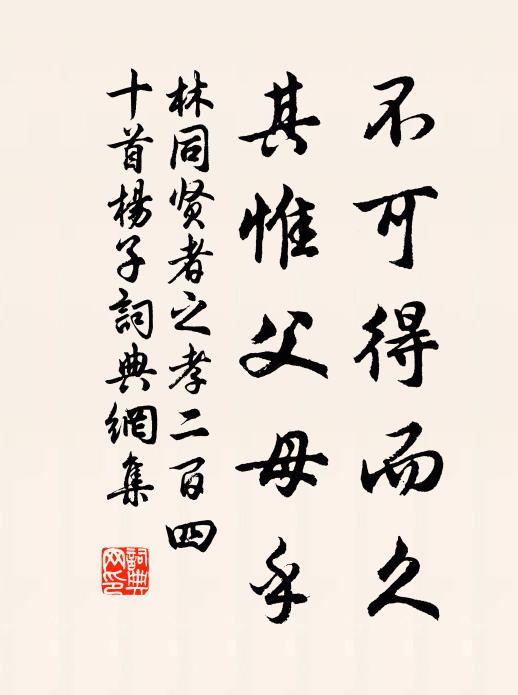 不可得而久
其惟父母乎
林同贤者之孝二百四
十首楊子詞典網集
詞典
网印